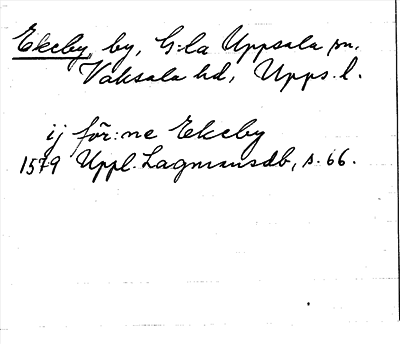 Ekeby, by, G:la Uppsala sn.
Vaksala hd, Upps. l.
ij för:ne Ekeby
1579 Uppl. Lagmansdb, s. 66.